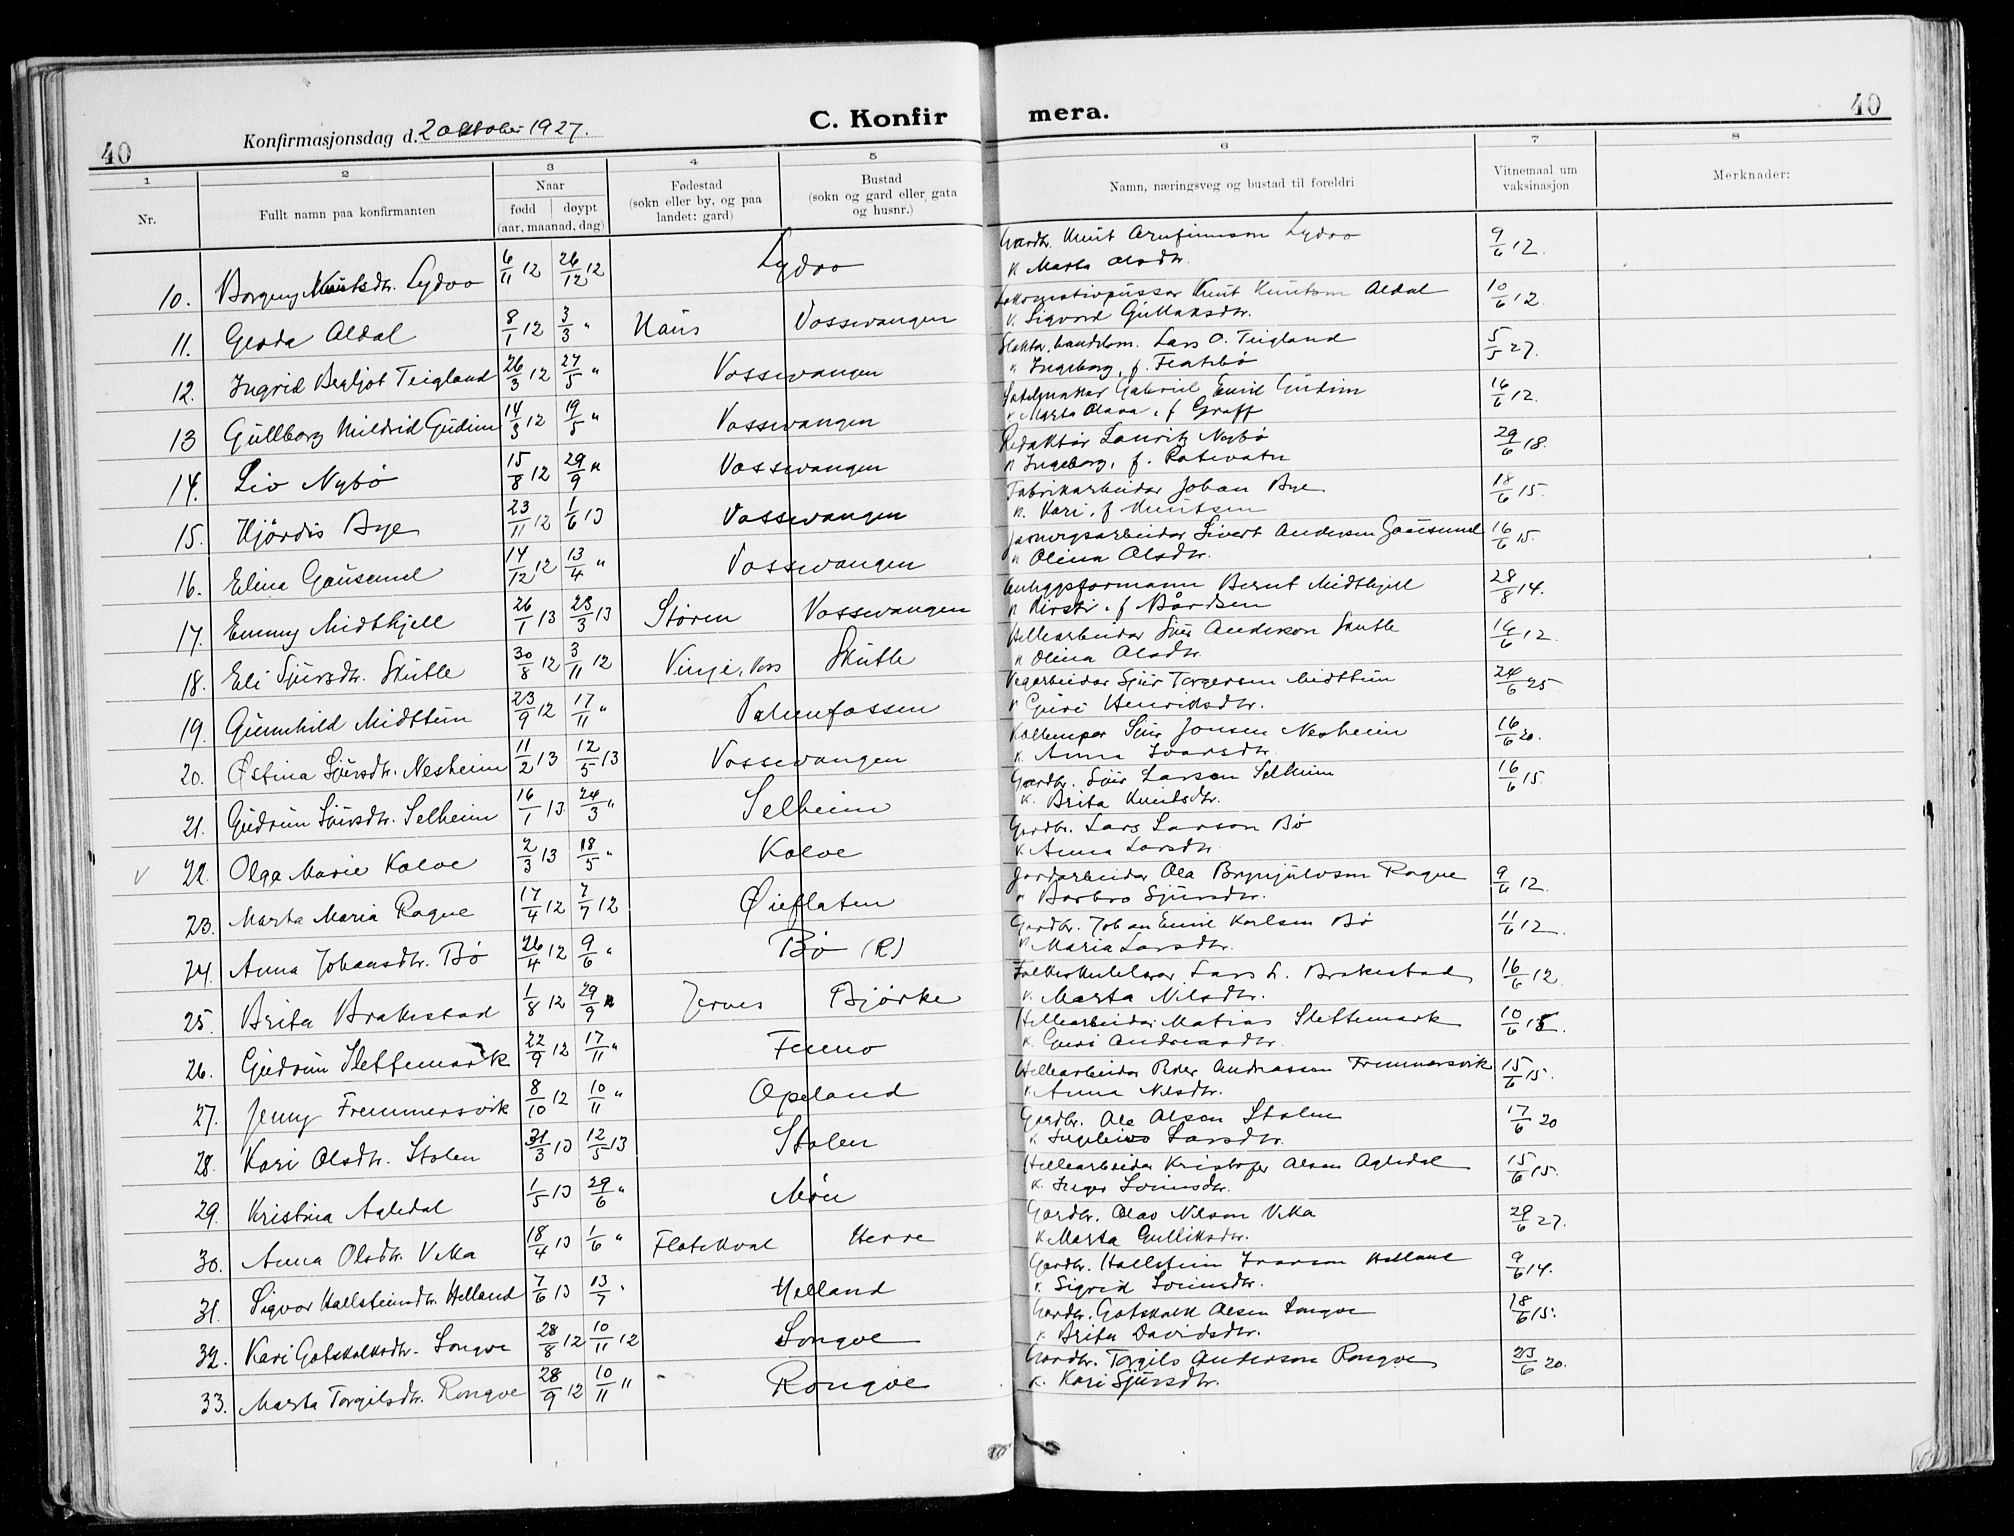 40
Konfirmasjonsdag d. 2 oktober 1927.
C. Konfir
mera.
40
1 2 3 4 5 6 7 8
Nr.
Fullt namn paa konfirmanten
Naar
fødd døypt
(aar, maanad, dag)
Fødestad
(sokn eller by, og paa
landet: gard)
Bustad
(sokn og gard eller gata
og husnr.)
Namn, næringsveg og bustad til foreldri
Vitnemaal um
vaksinasjon
Merknader:
10. Borgny Knutsdtr. Lydvo 6/11 12 26/12 12 Lydvo Gardbr. Knut Arnfinnson Lydvo 9/6 12.
k Marta Olsdtr.
11. Gerda Aldal 8/1 12 3/3 " Haus Vossevangen Lokomotivpussar Knut Knutson Aldal 10/6 12.
k. Sigvord Gullaksdtr.
12. Ingrid Bergljot Teigland 26/3 12 27/5 " Vossevangen Slaktar, handelsm. Lars O. Teigland 5/5 27.
k Ingeborg, f.
13 Gullborg Mildrid Gudim 14/3 12 19/5 " Vossevangen Salmakar Gabriel Emil Gudim 16/6 12.
k Marta Olava, f Graff
14. Liv Nybø 15/8 12 29/9 " Vossevangen Redaktør Lauritz Nybø 29/6 18.
k Ingeborg, f. Rotevatn
15. Hjørdis Bye 23/11 12 1/6 13 Vossevangen Fabrikarbeidar Johan Bye 18/6 15.
k. Kari, f Knutsen
16. Elina Gausemel 14/12 12 13/4 " Vossevangen Jarnvegsarbeidar Sivert Andersen Gausemel 16/6 15.
k Olina Olsdtr.
17. Emmy Midtkjell 26/1 13 23/3 13 Støren Vossevangen Anleggsformann Bernt Midtkjell 28/8 14.
k Kirsti, f Bårdsen
18. Eli Sjursdtr. Skutle 30/8 12 3/11 12 Vinje, Voss Skutle Hellearbeidar Sjur Anderson Skutle 16/6 12.
k Olina Olsdtr.
19. Gunnhild Midttun 23/9 12 17/11 " Palmafossen Vegarbeidar Sjur Torgersen Midttun 24/6 25.
k Guri Henriksdtr.
20. Østina Sjursdtr. Nesheim 11/2 13 12/5 13 Vossevangen Sjur Jonsen Nesheim 16/6 20.
k. Anna Ivarsdtr.
21. Gudrun Sjursdtr. Selheim 16/1 13 24/3 " Selheim Gardbr. Sjur Larsen Selheim 16/6 15.
k. Brita Knutsdtr.
v 22. Olga Marie Kolve 2/3 13 18/5 " Kolve Gardbr. Lars Larson Bø
k. Anna Larsdtr.
23. Marta Maria Rogne 17/4 12 7/7 12 Øieflaten Jordarbeidar Ola Brynjulvson Rogne 9/6 12.
k Barbro Sjursdtr.
24. Anna Johansdtr. Bø 26/4 12 9/6 " Bø (R) Gardbr. Johan Emil Karlsen Bø 11/6 12.
k Maria Larsdtr.
25. Brita Brakestad 1/8 12 29/9 " Jernes Bjørke Folkeskulelærar Lars L. Brakestad 16/6 12.
k. Marta Nilsdtr.
26. Gudrun Slettemark 22/9 12 17/11 " Fenno Hellearbeidar Matias Slettemark 10/6 15.
k. Guri Andreasdtr.
27. Jenny Fremmersvik 8/10 12 10/11 " Opeland Hellearbeidar Peder Andreassen Fremmersvik 15/6 15.
k. Anna Nilsdtr.
28. Kari Olsdtr. Stolen 31/3 13 12/5 13 Stolen Gardbr. Ole Olsen Stolen 17/6 20
k Ingebjørg Larsdtr.
29. Kristina Agledal 1/5 13 29/6 " Møn Hellearbeidar Kristofer Olsen Agledal 15/6 15.
k. Inger Sveinsdtr.
30. Anna Olsdtr. Veka 18/4 13 1/6 " Flatekval Herre Gardbr. Olav Nilson Veka 29/6 27.
k Marta Gulliksdtr.
31. Sigvor Hallsteinsdtr. Helland 7/6 13 13/7 " Helland Gardbr. Hallstein Ivarson Helland 9/6 14.
k. Sigrid Sveinsdtr.
32. Kari Gotskalksdtr. Songve 28/8 12 10/11 12 Songve Gardbr. Gotskalk Olsen Songve 18/6 15.
k. Brita Davidsdtr.
33. Marta Torgilsdtr. Rongve 28/9 12 10/11 " Rongve Gardbr. Torgils Anderson Rongve 23/6 20.
k. Kari Sjursdtr.